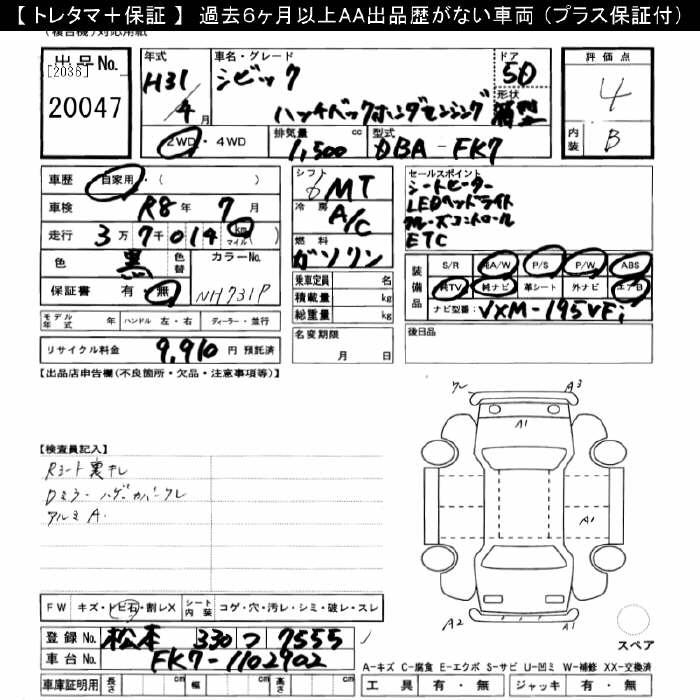 【 トレタマ＋保証 】 過去6ヶ月以上AA出品歴がない車両（プラス保証付）
出品No.
[2036]
20047
年式 車名・グレード ドア 評価点
H31 シビック 5D
4月 ハッチバックホンダセンシング 形状
4
2WD・4WD 排気量 cc 型式 内装 B
1,500 DBA-FK7
車歴 自家用・( )
車検 R8年 7月
走行 3万7千014 km マイル( )
色 黒 色替 カラーNo.
保証書 有・無 NH731P
シフト 6MT
冷房 A/C
燃料 ガソリン
乗車定員 名
積載量 kg
総重量 kg
セールスポイント
シートヒーター
LEDヘッドライト
クルーズコントロール
ETC
装備品 S/R 純A/W P/S P/W ABS
純TV 純ナビ 革シート 外ナビ エアB
ナビ型番: VXM-195VFi
モデル年式 年 ハンドル 左・右 ディーラー・並行
名変期限 月 日
後日品
リサイクル料金 9,910 円 預託済
【出品店申告欄(不良箇所・欠品・注意事項等)】
【検査員記入】
Rシート裏キレ
Dミラーハゲ カバークレ
アルミ A.
ワレ A3
A1
A1
A2 A1
スペア
FW キズ・トビ石・割レX シート内装 コゲ・穴・汚レ・シミ・破レ・スレ
登録No. 松本 330 つ 7555
車台No. FK7-1102902
A-キズ C-腐食 E-エクボ S-サビ U-凹ミ W-補修 XX-交換済
車庫証明用 長さ cm 幅 cm 高さ cm 工具 有・無 ジャッキ 有・無